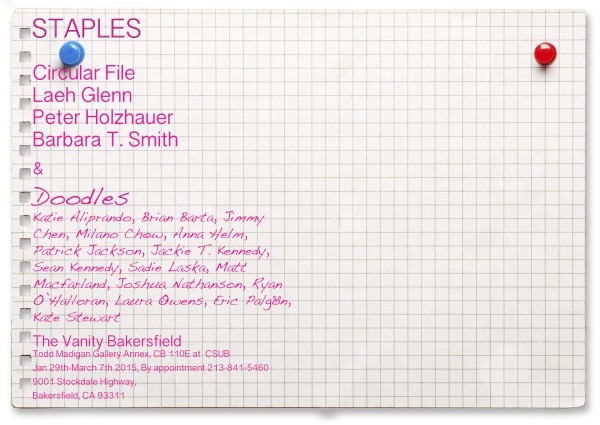 STAPLES
Circular File
Laeh Glenn
Peter Holzhauer
Barbara T. Smith
&
Doodles
Katie Aliprando, Brian Barta, Jimmy
Chen, Milano Chow, Anna Helm,
Patrick Jackson, Jackie T. Kennedy,
Sean Kennedy, Sadie Laska, Matt
Macfarland, Joshua Nathanson, Ryan
O'Halloran, Laura Owens, Eric Palgon,
Kate Stewart
The Vanity Bakersfield
Todd Madigan Gallery Annex, CB 110E at CSUB
Jan 29th-March 7th 2015, By appointment 213-841-5460
9001 Stockdale Highway,
Bakersfield, CA 93311